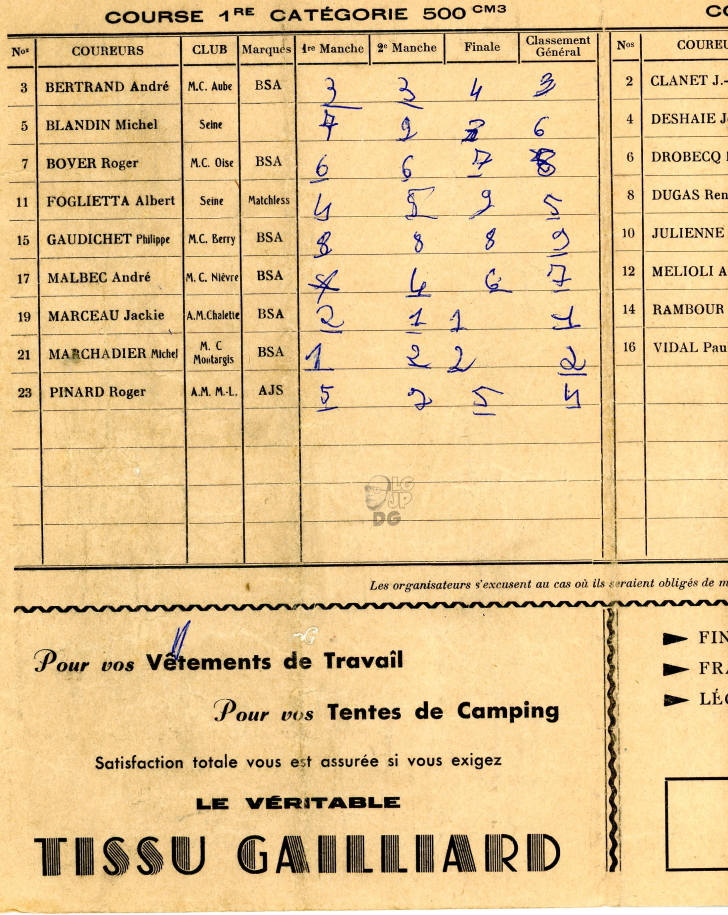 COURSE 1RE CATÉGORIE 500 CM3
Nos COUREURS CLUB Marques 1re Manche 2e Manche Finale Classement Général
3 BERTRAND André M.C. Aube BSA 3 3 4 3
5 BLANDIN Michel Seine 7 9 6
7 BOVER Roger M.C. Oise BSA 6 6 7 8
11 FOGLIETTA Albert Seine Matchless 4 5 9 5
15 GAUDICHET Philippe M.C. Berry BSA 8 8 8 9
17 MALBEC André M. C. Nièvre BSA 4 6 7
19 MARCEAU Jackie A.M.Chalette BSA 2 1 1 1
21 MARCHADIER Michel M. C Montargis BSA 1 2 2 2
23 PINARD Roger A.M. M.-L. AJS 5 7 5 4
Nos COUREU
2 CLANET J.-
4 DESHAIE J
6 DROBECQ
8 DUGAS Ren
10 JULIENNE
12 MELIOLI A
14 RAMBOUR
16 VIDAL Pau
LG
JP
DG
Les organisateurs s'excusent au cas où ils seraient obligés de m
Pour vos Vêtements de Travaîl
Pour vos Tentes de Camping
Satisfaction totale vous est assurée si vous exigez
LE VÉRITABLE
TISSU GAILLIARD
FIN
FRA
LÉG